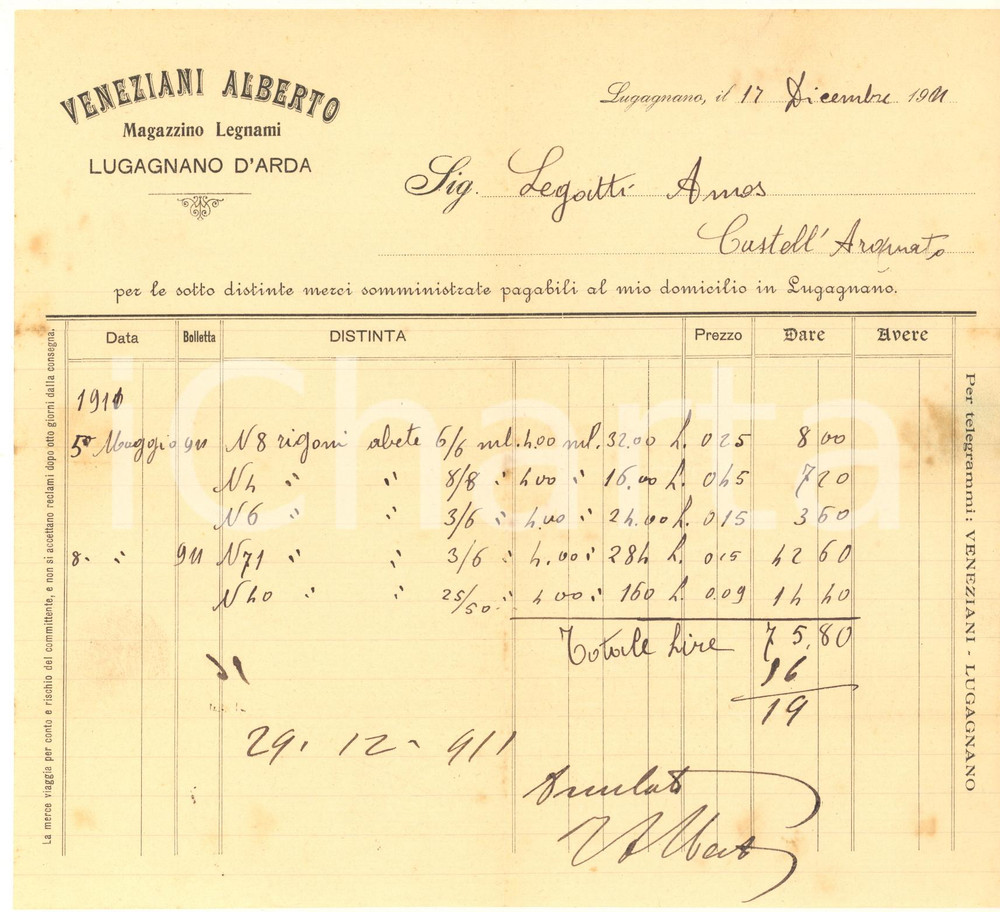 VENEZIANI ALBERTO
Magazzino Legnami
LUGAGNANO D'ARDA
Lugagnano, il 17 Dicembre 1911
Sig. Legatti Amos
Castell' Arquato
per le sotto distinte merci somministrate pagabili al mio domicilio in Lugagnano.
Data Bolletta DISTINTA Prezzo Dare Avere
1911
5 Maggio 911 N 8 rigoni abete 6/6 ml. 4.00 ml. 32.00 L. 0 25 8 00
N 4 " " 8/8 " 4 00 " 16.00 L. 0 45 7 20
N 6 " " 3/6 " 4.00 " 24.00 L. 0 15 3 60
8 - " 911 N 71 " " 3/6 " 4.00 " 284 L. 0 15 42 60
N 40 " " 25/50 " 4 00 " 160 L. 0.09 14 40
Totale Lire 75,80
16
19
29. 12 - 911
La merce viaggia per conto e rischio del committente, e non si accettano reclami dopo otto giorni dalla consegna.
Per telegrammi: VENEZIANI - LUGAGNANO
iCharta